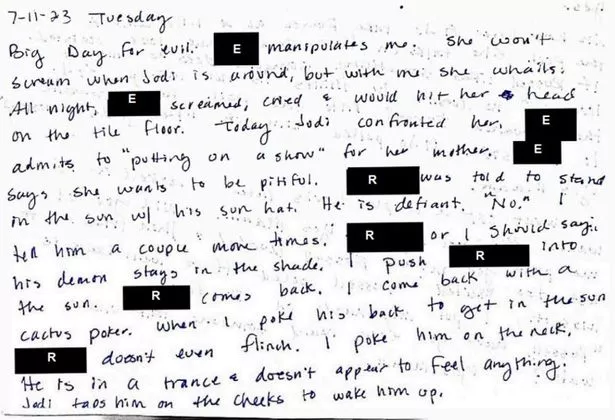 7-11-23 Tuesday
Big Day for evil. E manipulates me. She won't
scream when Jodi is around, but with me she whails.
All night, E screamed, cried & would hit her head
on the tile floor. Today Jodi confronted her. E
admits to "putting on a show" for her mother. E
says she wants to be pitiful. R was told to stand
in the sun w/ his sun hat. He is defiant. "No." I
tell him a couple more times. R or I should say,
his demon stays in the shade. I push R into
the sun. R comes back. I come back with a
cactus poker. When I poke his back to get in the sun
R doesn't even flinch. I poke him on the neck.
He is in a trance & doesn't appear to feel anything.
Jodi taps him on the cheeks to wake him up.